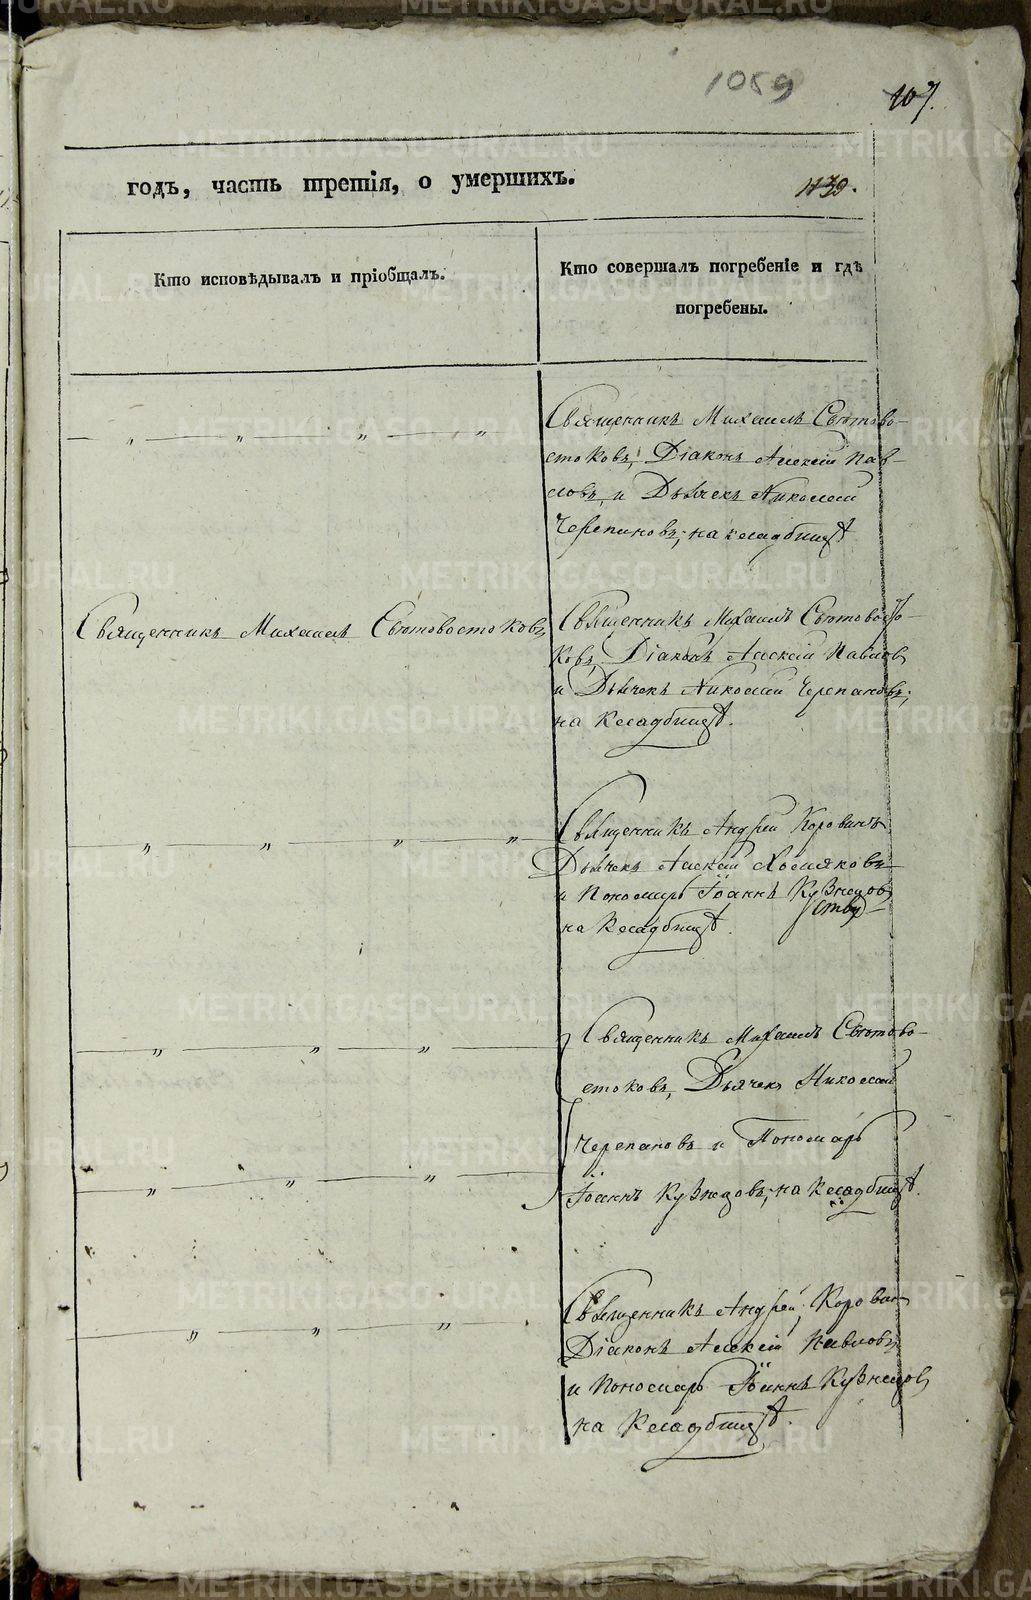 1059
107.
годъ, часть третія, о умершихъ.
Кто исповѣдывалъ и пріобщалъ.
Кто совершалъ погребеніе и гдѣ
погребены.
Священникъ Михаилъ Свѣтово-
стоковъ, Діаконъ Алексій Пав-
ловъ, и Дьячекъ Николай
Черепановъ; на кладбищѣ
Священникъ Михаилъ Свѣтовостоковъ
Священникъ Михаилъ Свѣтовосто-
ковъ, Діаконъ Алексій Павловъ
и Дьячекъ Николай Черепановъ;
на кладбищѣ.
Священникъ Андрей Коровинъ
Дьячекъ Алексій Хомяковъ
и Пономарь Іоаннъ Кузнецовъ
на кладбищѣ.
Священникъ Михаилъ Свѣтово-
стоковъ, Дьячекъ Николай
Черепановъ и Пономарь
Іоаннъ Кузнецовъ; на кладбищѣ.
Священникъ Андрей Коровин
Діаконъ Алексій Павловъ
и Пономарь Іоаннъ Кузнецовъ
на кладбищѣ.
METRIKI.GASO-URAL.RU